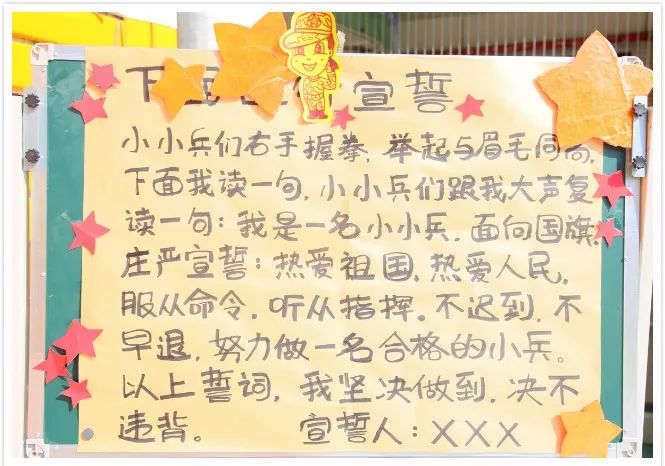 下面 宣誓
小小兵们右手握拳，举起与眉毛同高，
下面我读一句，小小兵们跟我大声复
读一句：我是一名小小兵，面向国旗，
庄严宣誓：热爱祖国，热爱人民，
服从命令，听从指挥。不迟到，不
早退，努力做一名合格的小兵。
以上誓词，我坚决做到，决不
违背。 宣誓人：XXX